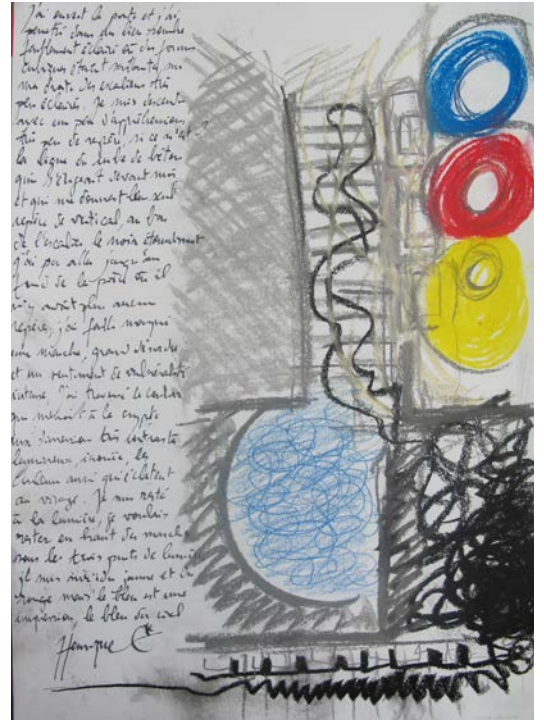 J'ai ouvert la porte et j'ai
pénétré dans un lieu sombre
faiblement éclairé où des formes
cubiques étaient
ma droite des escaliers très
peu éclairés. Je suis descendu
avec un peu d'appréhension
très peu de repère, si ce n'est
la ligne du cube de béton
qui s'érigeant devant moi
et qui me donnait les seuls
repère de vertical, au bas
de l'escalier le noir
j'ai pas aller jusqu'au
fond de la où il
n'y avait plus aucun
repère, j'ai failli manquer
une marche, grand
et un sentiment de vulnérabilité
intense. J'ai traversé le couloir
qui menait à la crypte
dimension très contrasté
lumineux, les
couleurs ainsi qui éclatent
au visage. Je suis resté
à la lumière, je voulais
rester en haut des marches
sous les trois puits de lumière
je suis jaune et en
rouge mais le bleu est une
impression, le bleu du ciel